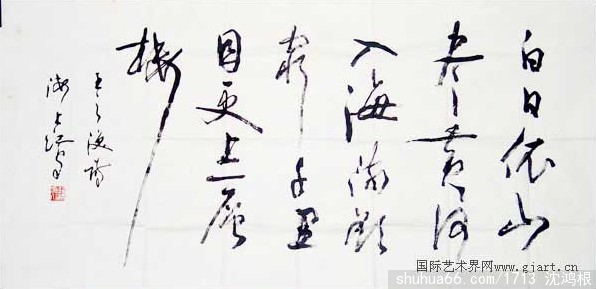 白日依山
尽黄河
入海流欲
穷千里
目更上一层
楼
王之涣诗
海上
国际艺术界网www.gjart.cn
shuhua66.com/1713 沈鸿根